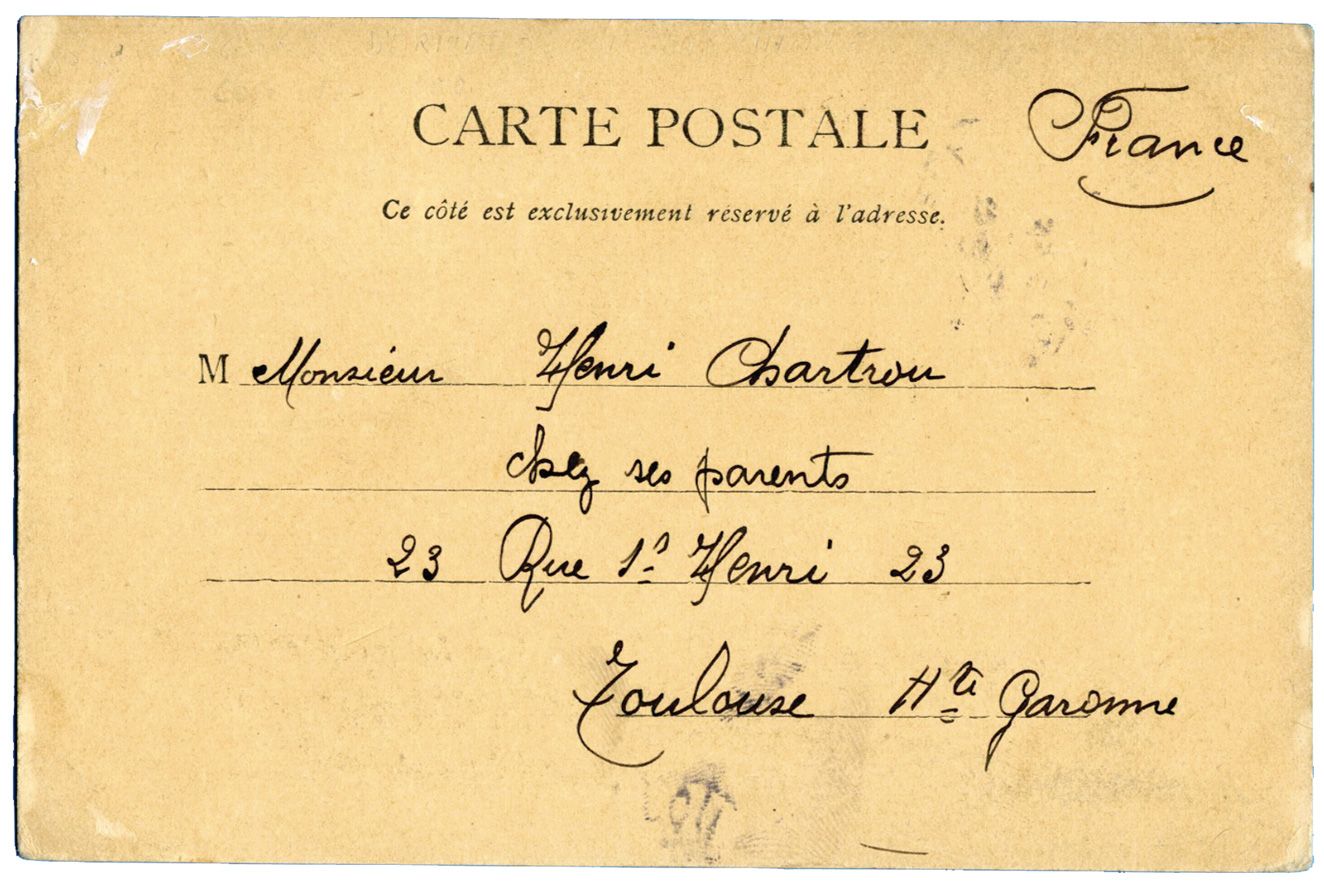 CARTE POSTALE
France
Ce côté est exclusivement réservé à l'adresse.
M Monsieur Henri Chartrou
chez ses parents
23 Rue St Henri 23
Toulouse Hte Garonne